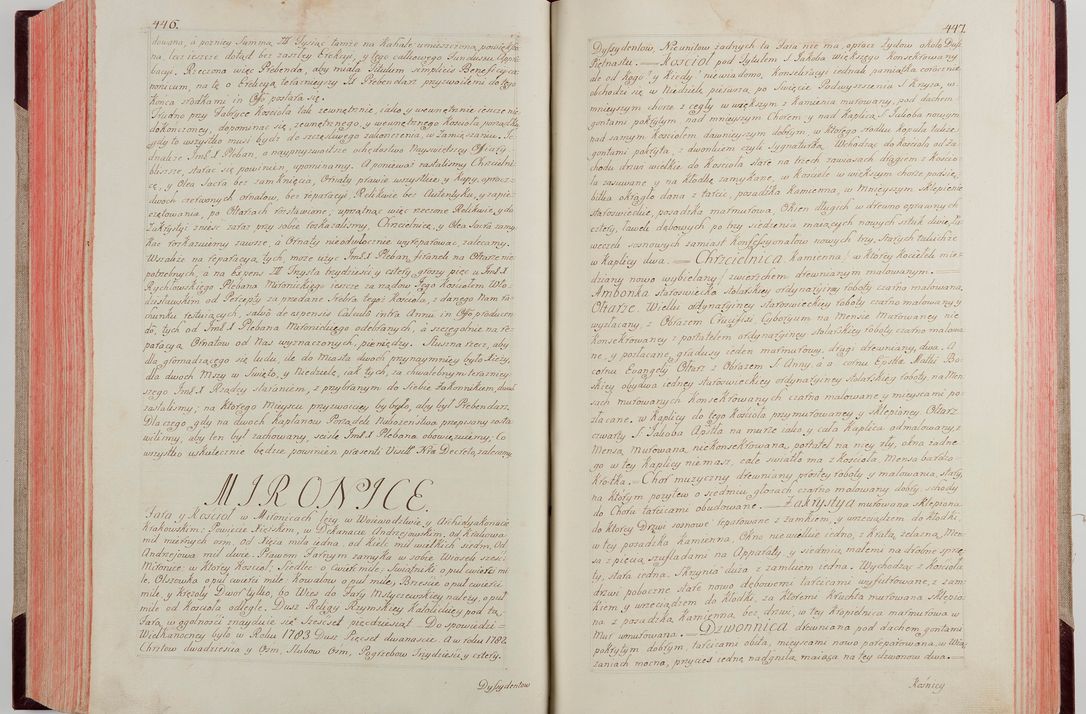 446.
dowana, á pozniey Summa III Tysiąc tamze na Kahale umieszczona, powięksżo
na, lecz ieszcze dotąd bez zaszłey Erekcyi y tego całkowego Funduszu Appro
bacyi. Rzeczona więc Prebenda, aby miała Titulum simplicis Beneficy ca
nonicum, na tę o Erekcyą teraznieyszy Jł Prebendarz przyzwoitemi do tego
końca srodkami in Offo postara się.
Trudno przy Fabryce Kościoła tak zewnętrznie, iako y wewnętrznie ieszcze nie
dokończoney, dopominać się, zewnętrznego, y wewnętrznego Kościoła porządku
gdy to wszystko musi bydz do szczęśliwego zakończenia, w zamięszaniu. Je
dnakze ImJ.X Pleban, o nayprzyzwoitsze ochędostwo Nayswiętszey Ofiary
blizsze, starać się powinien, upominamy. A ponieważ zastalismy Chrzcielni
cę, y Olea Sacra bez zamknięcia, Ornaty prawie wszystkie, y Kapy, oprocz
dwoch czerwonych ornatow, bez reparacyi, Relikwie bez Autentyku, y zapie
czętowania, po Ołtarzach rozstawione; uprzątnąc więc rzeczone Relikwie, y do
Zakrystyi zniesc zaraz przy sobie rozkazalismy, Chrzcielnicę, y Olea Sacra zamy
kać rozkazuiemy zawsze, á Ornaty nieodwłocznie wyreparować, zalecamy.
Wszakze na reparacyą tych, może uzyc ImJ.X Pleban, firanek na Ołtarze nie
potrzebnych, á na Expens III Trzysta trzydziesci y cztery, groszy pięc u ImJ.X
Rychłowskiego Plebana Mironickiego ieszcze za rządow Jego Kościołem Wło
dzisławskim od Percepty za przedane srebra tegoż Kościoła, z danego Nam ra
chunku restuiących, salvo de expensis Calculo intra Annu in Offo producen
do, tych od ImJ.X Plebana Mironickiego odebranych, á szczegolnie na re
paracyą Ornatow od Nas wyznaczonych, pieniędzy. Słuszna rzecz, aby
dla gromadzącego się ludu, ile do Miasta dwoch przynaymniey było Xięzy,
dla dwoch Mszy w Swięto, y Niedziele, iak tych, za chwalebnym terazniey
szego ImJ.X Rządcy staraniem, z przybranym do siebie Zakonnikiem, dwoch
zastalismy; na ktorego Mieyscu przyzwoiciey by było, aby był Prebendarz.
Dlaczego, gdy na dwoch Kapłanow Porządek Nabozenstwa przepisany zosta
wilismy, aby ten był zachowany, scisle ImJ.X Plebana obowięzuiemy; Co
wszystko uskutecznic będzie powinien præsenti Visitt. Nræ Decreto, zalecamy.
MIRONICE.
Fara y Kościoł w Mironicach leży, w Woiewodztwie, y Archidyakonacie
Krakowskim; Powiecie Xięskim, w Dekanacie Andrzejowskim, od Krakowa
mil miernych osm, od Xięza mila iedna, od Kielc mil wielkich siedm, Od
Andrzejowa mil dwie. Prawem Farnym zamyka w sobie Wiosek szesc
Mironice w ktorey Kosciol; Siedlec o cwierc mile; Swiątniki o puł cwierci mi
le, Olszowka o puł cwierci mile, Kowalow o puł mile, Brzescie o puł cwierci
mile, y Krężoły Dwor tylko, bo Wies do Fary Mstyczewskiey należy, o puł
mile od Kościoła odległe. Dusz Religii Rzymskiey Katolickiey pod tą
Farą, w ogolnosci znayduie się szescset piecdziesiąt. Do spowiedzi
Wielkanocney było w Roku 1783 Dusz Pięcset dwanascie. A w roku 1782.
Chrztow dwadziescia y Osm, Slubow Osm, Pogrzebow Trzydziesci, y cztery.
Dyssydentow
447.
Dyssydentow, Nieunitow żadnych ta Fara nie ma, oprocz Żydow około Dusz
Piętnastu. Kościoł pod Tytułem S. Jakoba Większego Konsekrowany
ale od Kogo? y Kiedy? niewiadomo, Konsekracyi iednak pamiątka corocznie
obchodzi się w Niedzielę pierwszą po Swięcie Podwyzszenia S. Krzyża, w
mnieyszym chorze z cegły w większym z kamienia murowany, pod dachem
gontami pokrytym, nad mnieyszym Chorem, y nad Kaplicą S. Jakoba nowym
nad samym Kościołem dawnieyszym dobrym, w ktorego srodku Kopuła takze
gontami pokryta, z dwonkiem czyli Sygnaturką. Wchodząc do Kościoła od za
chodu drzwi wielkie do Kościoła stare na trzech zawiasach drągiem z Koscio
ła zasuwane, y na Kłodkę zamykane, w Kościele w większym chorze podsie
bitka okrągło dana z tarcic, posadzka Kamienna, w mnieyszym Sklepienie
staroswieckie, posadzka marmurowa, Okien długich w drzewo oprawnych
cztery, ławek dębowych po trzy siedzenia maiących nowych sztuk dwie, Ła
weczek sosnowych zamiast Konfessyonałow nowych trzy, starych takichze
w Kaplicy dwa. Chrzcielnica Kamienna / w ktorey Kociełek mie
dziany nowo wybielany / zwierzchem drewnianym malowanym.
Ambonka staroswiecka stolarskiey ordynaryiney roboty czarno malowana
Ołtarze: Wielki ordynaryiney staroswieckiey roboty czarno malowany y
wyzłacany, z Obrazem Crucifixi, Cyboryum na Mensie Murowaney nie
konsekrowaney z portatelem ordynaryiney stolarskiey roboty czarno malowa
ne, y pozłacane, gradusy ieden marmurowy, drugi drewniany, dwa. A
cornu Evangely Ołtarz z Obrazem S. Anny, á a cornu Epistlæ Matki Bo
skiey obydwa iedney staroswieckiey ordynaryiney stolarskiey roboty, na Men
sach murowanych Konsekrowanych czarno malowane y mieyscami po
złacane, w Kaplicy do tego Kościoła przymurowaney y sklepioney Ołtarz
czwarty S. Jakoba Apstła na murze cało y cała Kaplica odmalowany, z
Mensą murowaną, niekonsekrowaną, portatel na niey zły, okna zadne
go w tey Kaplicy niemasz, całe swiatło ma z Kościoła, Mensa bardzo
krotka. Chor muzyczny drewniany prostey roboty y malowania, stary,
na ktorym pozytew o siedmiu głosach czarno malowany dobry, schody
do Choru tarcicami obudowane. Zakrystya murowana sklepiona
do ktorey Drzwi sosnowe reparowane z zamkiem, y wrzeciądzem do kłodki,
w tey posadzka Kamienna, Okno niewielkie iedno, z Kratą zelazną, Men
sa z piecią szufladami na Apparaty, y siedmią małemi na drobne sprzę
ty, stara iedna. Skrzynia duza z zamkiem iedna. Wychodząc z Kościoła
drzwi poboczne stare nowo dębowemi tarcicami wyfutrowane, z zam
kiem y wrzeciądzem do kłodki, za ktoremi Kruchta murowana sklepio
na z posadzką Kamienną, bez drzwi, w tey Kropielnica marmurowa w
Mur wmurowana. Dzwonnica drewniana pod dachem gontami
pokrytym dobrym, tarcicami obita, mieyscami nowo poreparowana, w Wią
zaniach mocna, przycies iedną nadgniłą, maiąca na tey dzwonow dwa.
Kośnicy